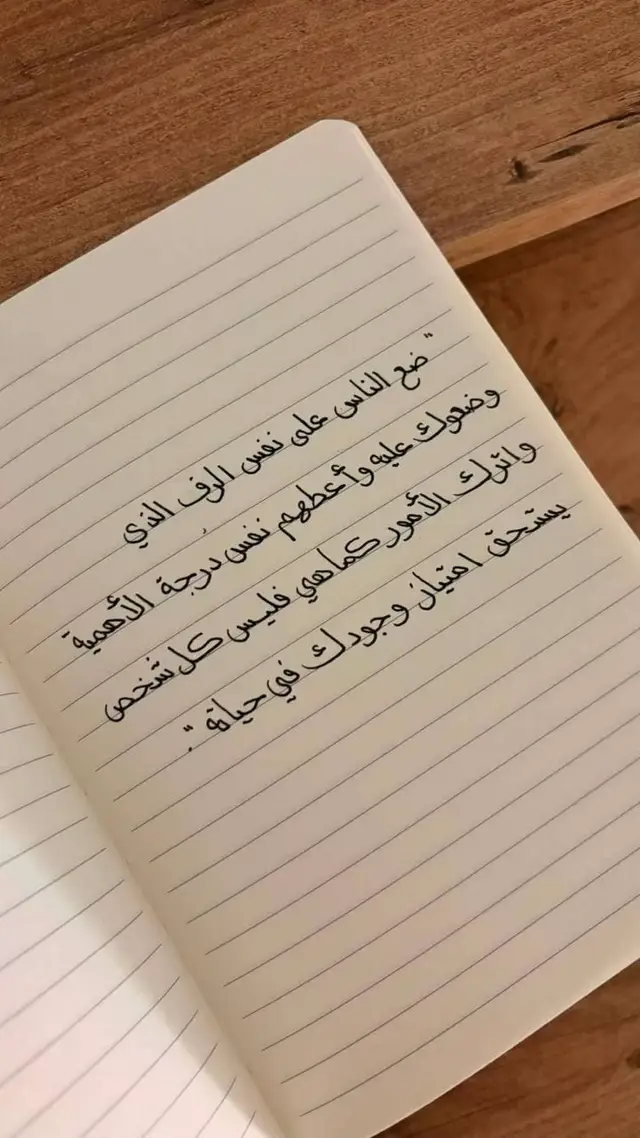 "ضع الناس على نفس الرف الذي
وضعوك عليه وأعطهم نفس درجة الأهمية
واترك الأمور كما هي فليس كل شخص
يستحق امتياز وجودك في حياته".